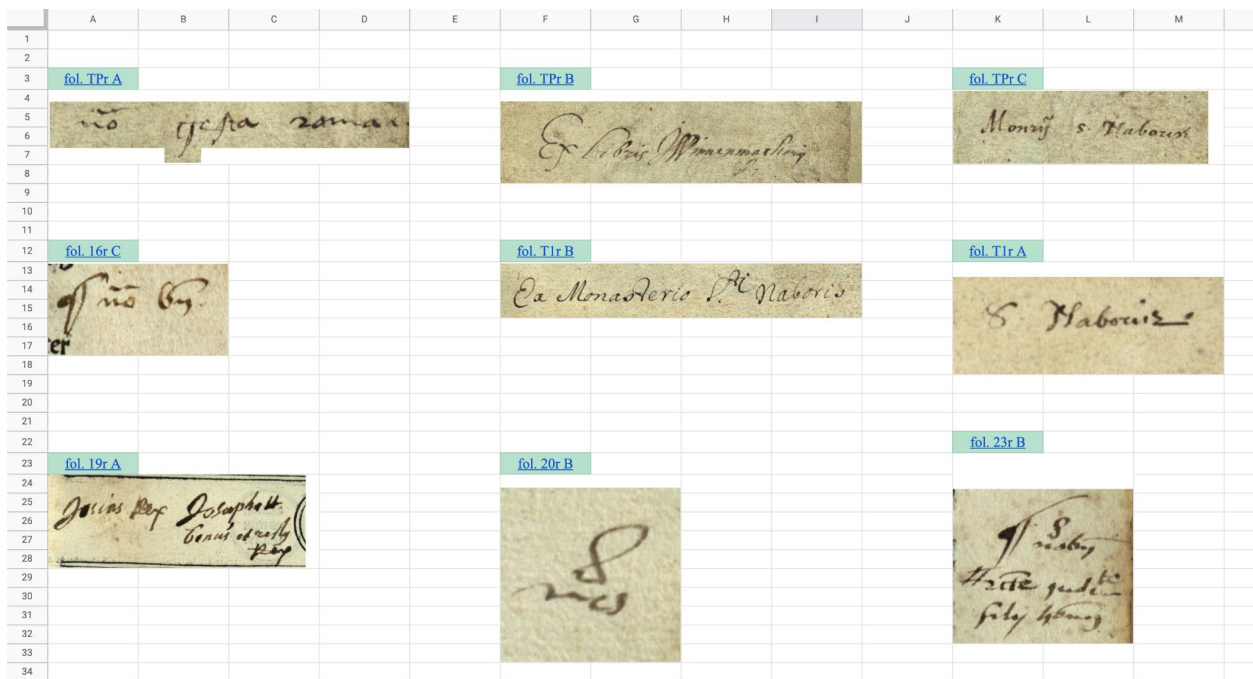 A B C D E F G H I J K L M
1
2
3 fol. TPr A fol. TPr B fol. TPr C
4
5 gesta
6 Ex Libris Monrij s. Naboris
7
8
9
10
11
12 fol. 16r C fol. T1r B fol. T1r A
13
14 Ex Monasterio S.ti Naboris
15 S. Naboris
16
17 er
18
19
20
21
22 fol. 23r B
23 fol. 19r A fol. 20r B
24
25 Josias Rex Josaphatt
26
27
28 Rex
29
30
31
32
33
34